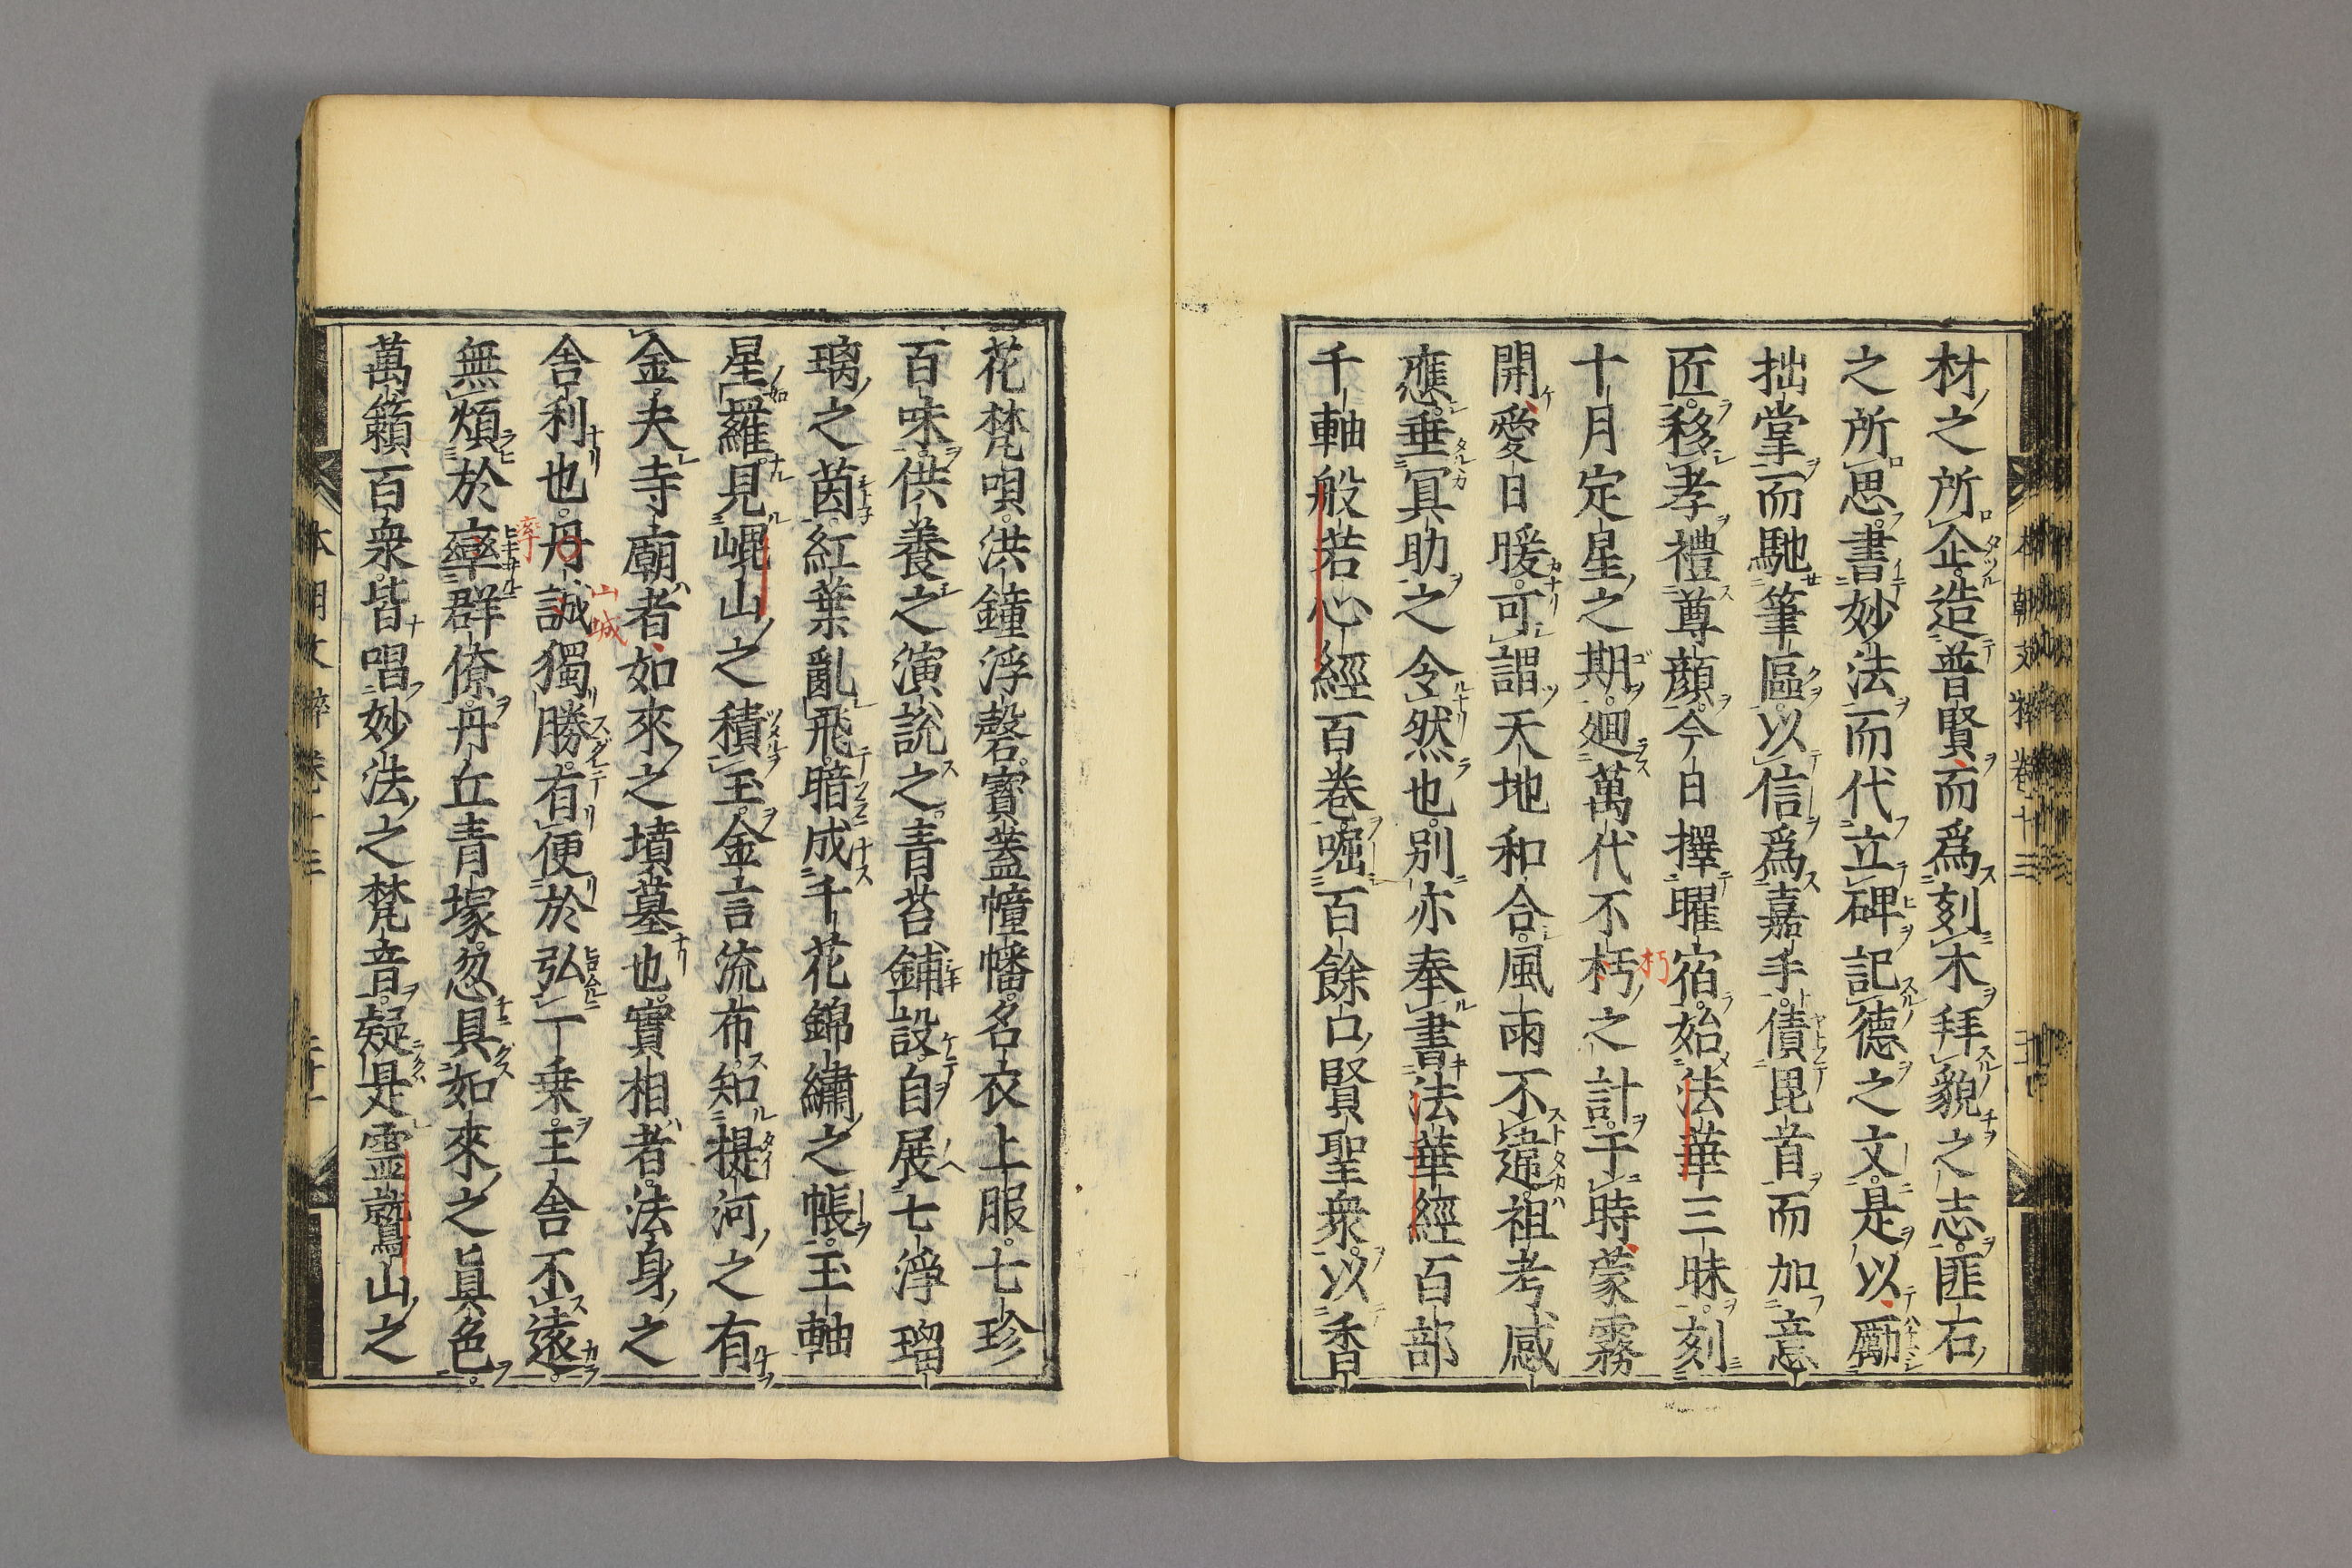 材之所企造普賢而爲刻木拜貌之志匪石
之所思書妙法而代立碑記德之文是以勵
拙掌而馳筆區以信爲嘉手債毘首而加意
匠移孝禮尊顔今日擇曜宿始法華三昧刻
十月定星之期廻萬代不朽之計于時蒙霧
開愛日暖可謂天地和合風雨不違祖考感
應垂冥助之令然也別亦奉書法華經百部
千軸般若心經百巻啒百餘口賢聖衆以香
花梵唄洪鐘浮磬寳蓋幢幡名衣上服七珍
百味供養之演説之青苔鋪設自展七淨瑠
璃之茵紅葉亂飛暗成千花錦繡之帳玉軸
星羅見崐山之積玉金言流布知提河之有
金夫寺廟者如來之墳墓也實相者法身之
舎利也丹誠獨勝有便於弘一乗王舎不遠
無煩於率群僚丹丘青塚忽具如來之眞色
萬籟百衆皆唱妙法之梵音疑是霊鷲山之
朽
山城
率
本朝文粹巻十三